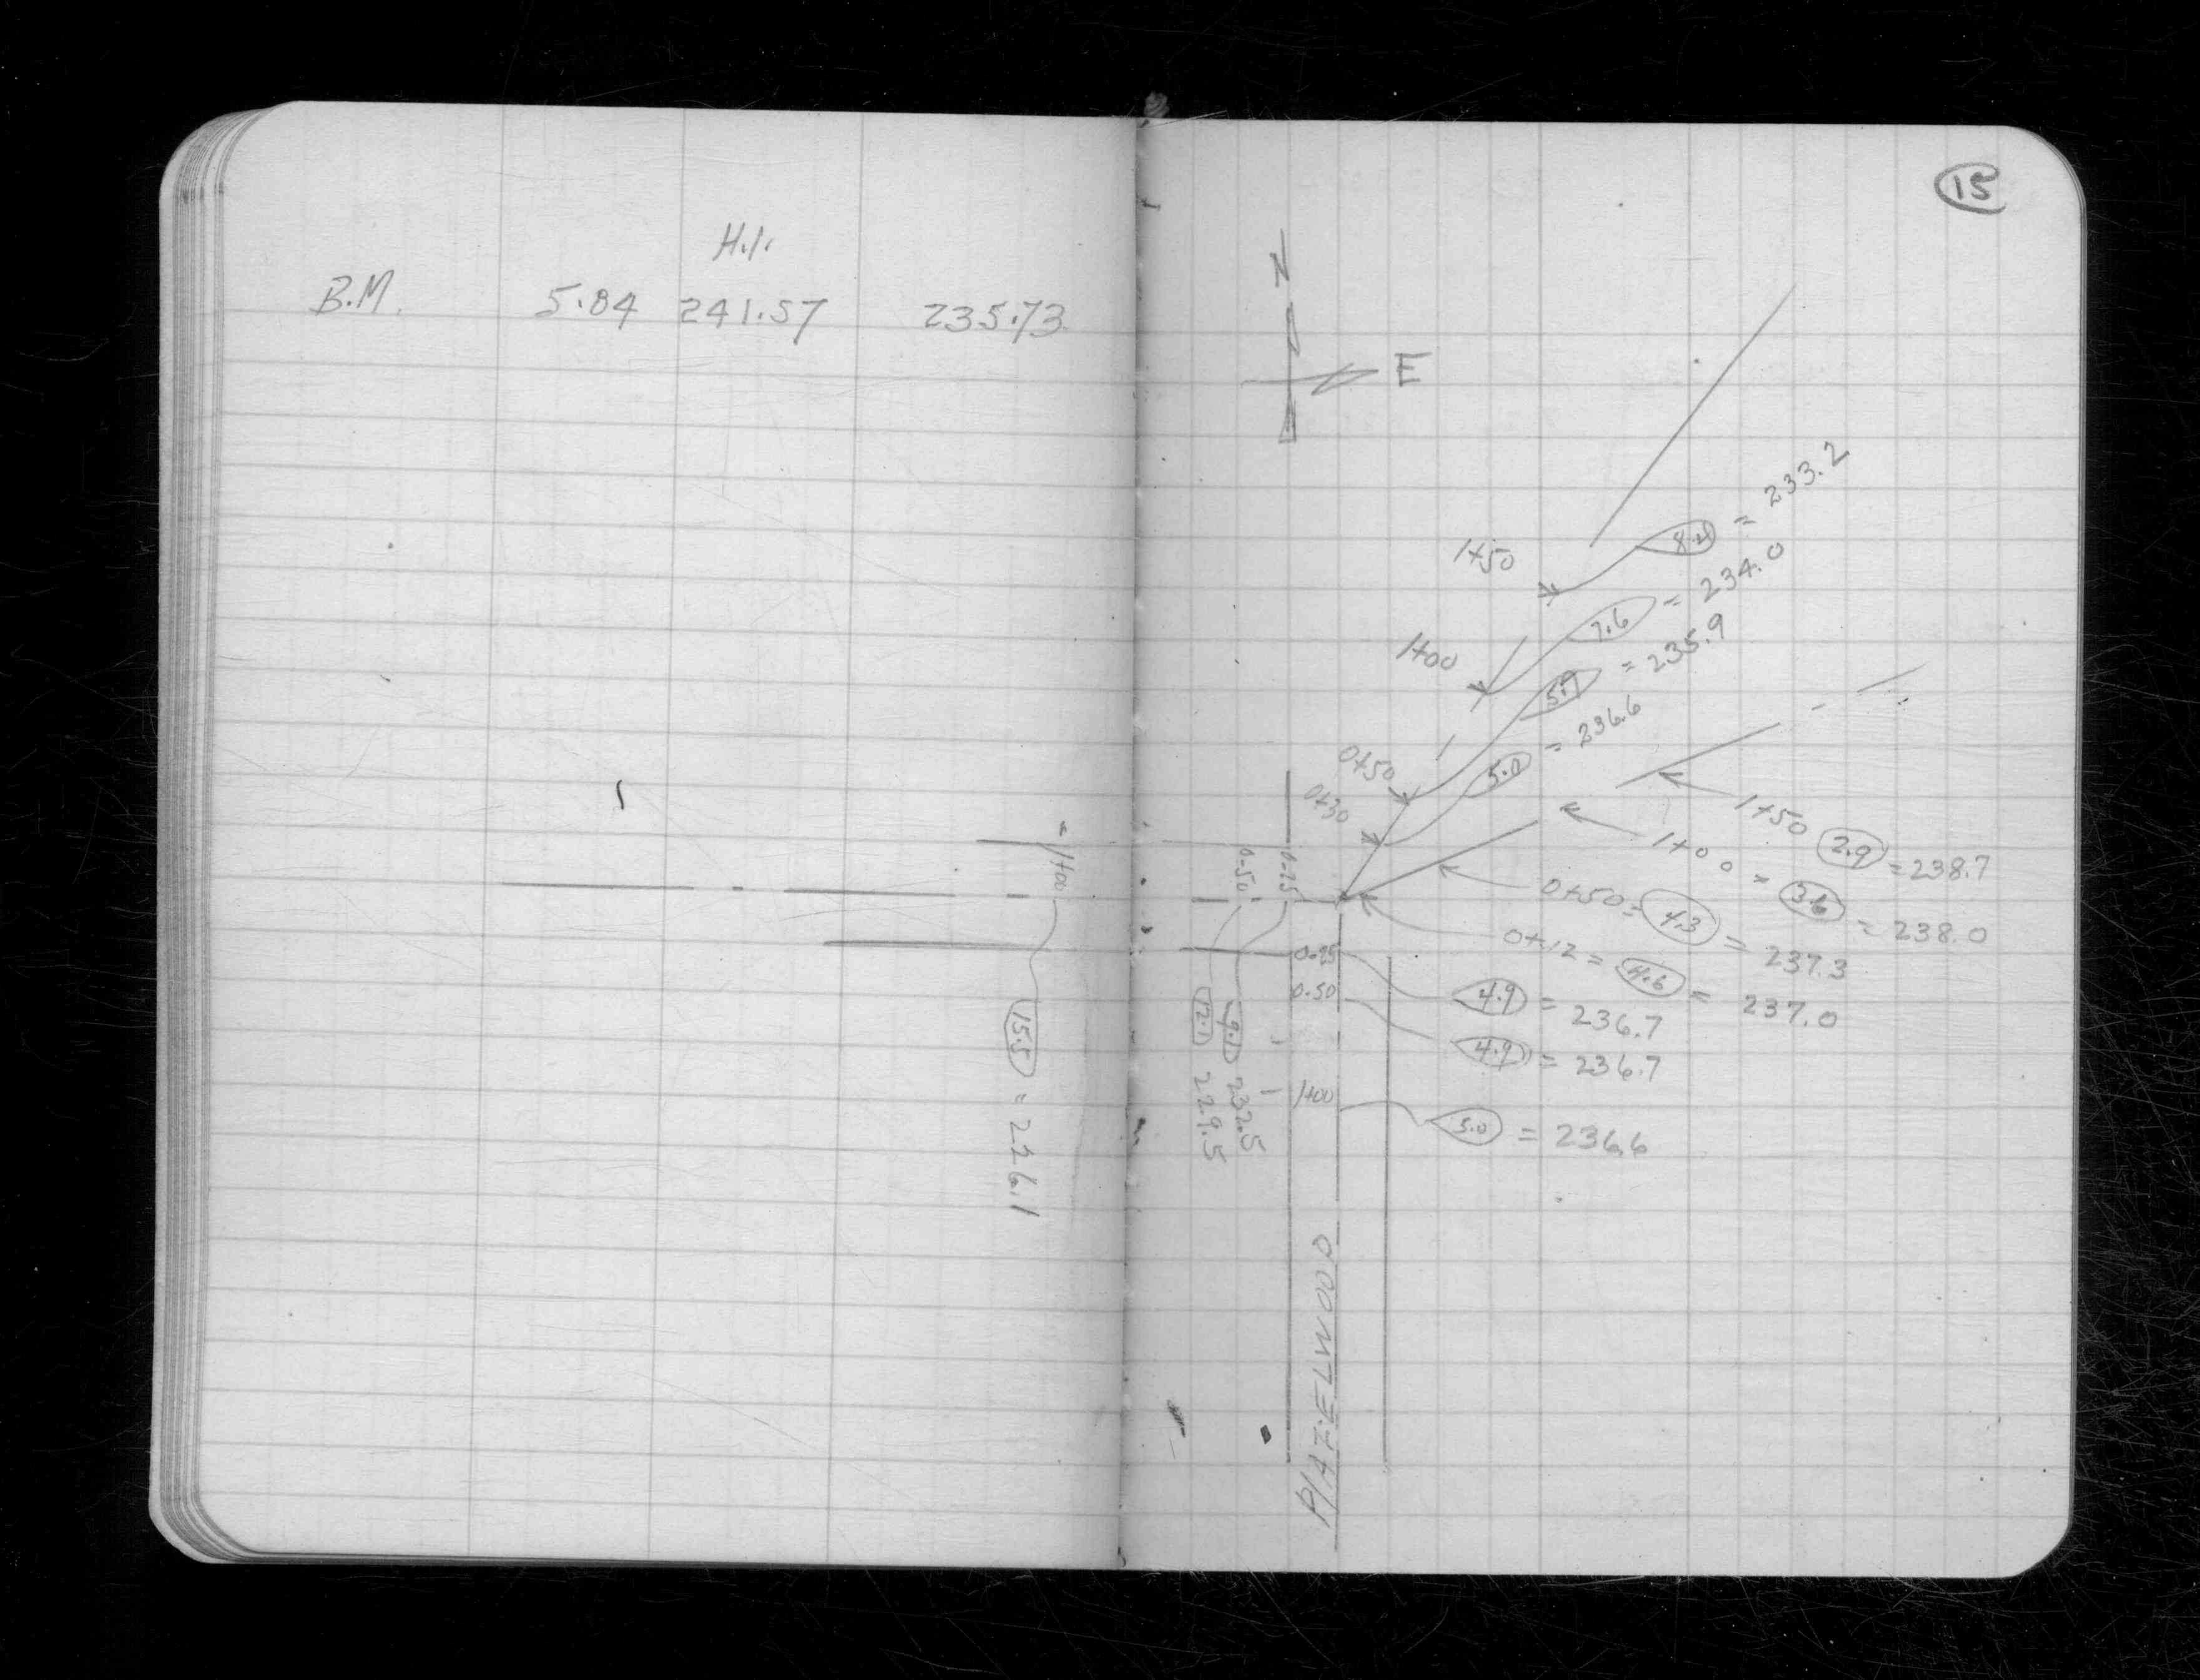 H.I.
B.M. 5.84 241.57 235.73
-1+00
15.5 = 226.1
15
N
E
1+50
8.4 = 233.2
1+00
7.6 = 234.0
0+50
5.7 = 235.9
0+30
5.0 = 236.6
1+50 2.9 = 238.7
1+00 = 3.6 = 238.0
0+50 = 4.3 = 237.3
0+12 = 4.6 = 237.0
0.50
0.25
12.1 229.5
9.1 232.5
0.25
4.9 = 236.7
0.50
4.9 = 236.7
1+00
5.0 = 236.6